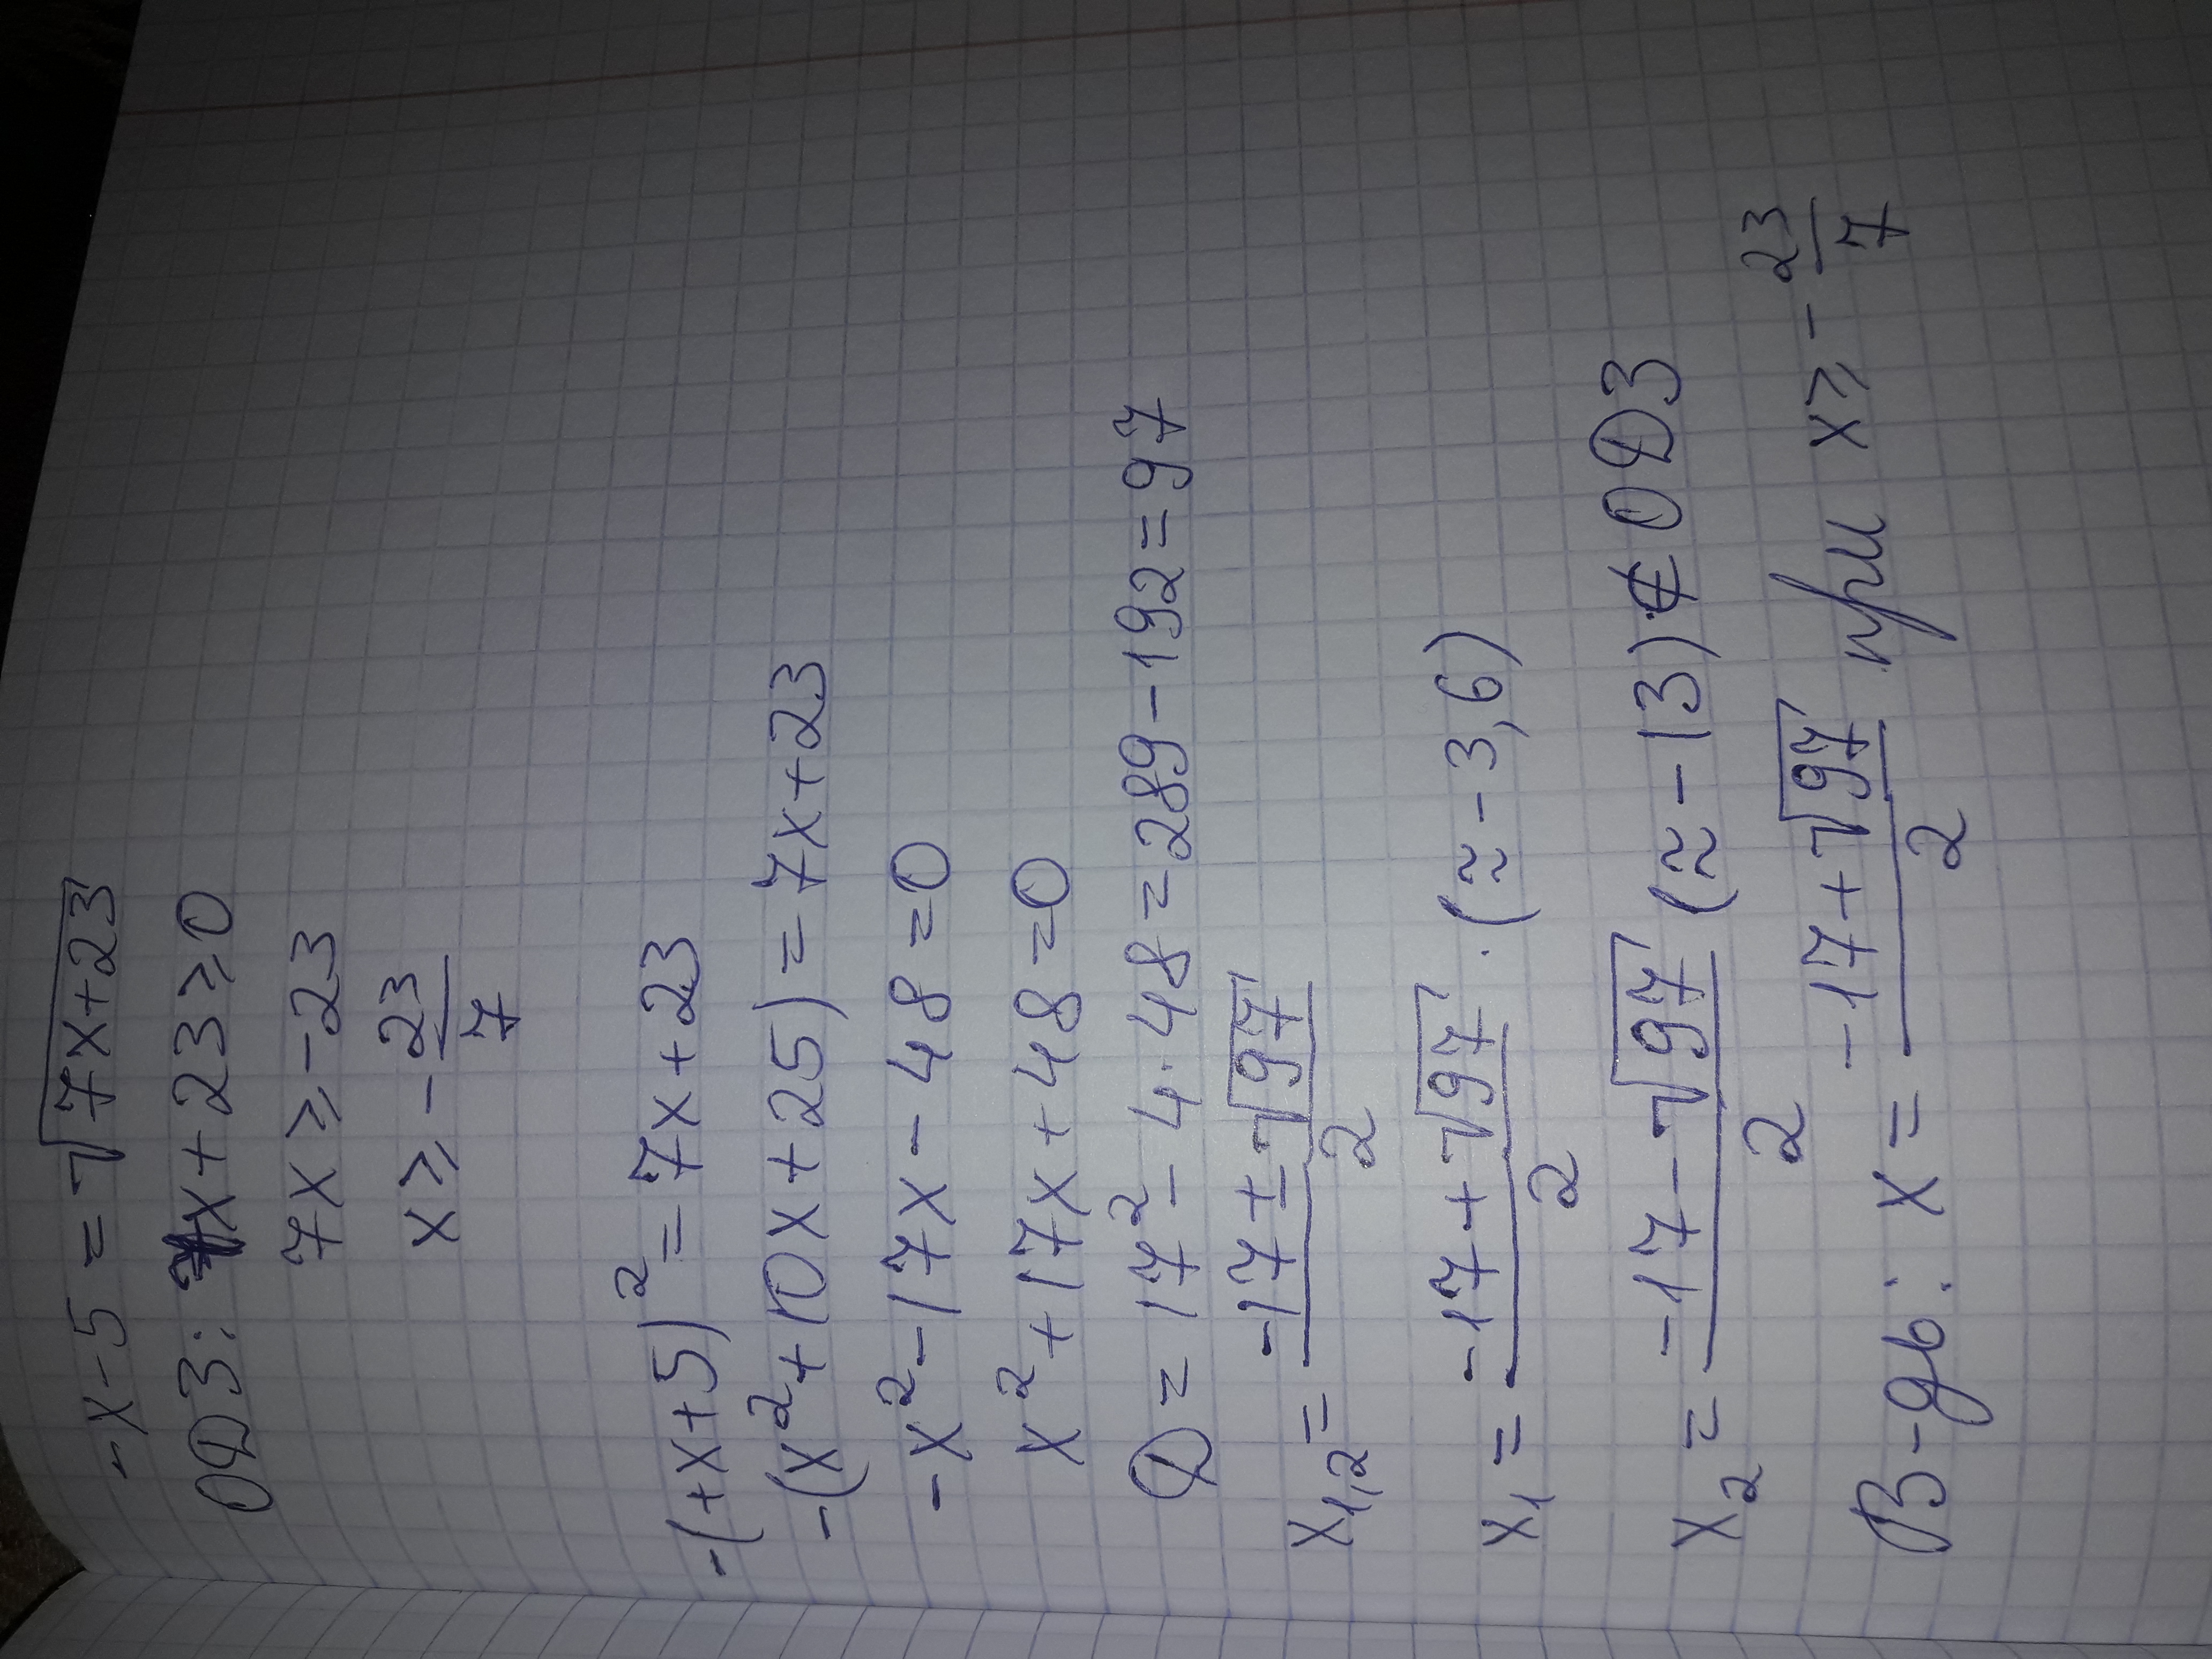 -x-5=√7x+23
ОДЗ: 7x+23≥0
7x≥-23
x≥-23/7
-(+x+5)²=7x+23
-(x²+10x+25)=7x+23
-x²-17x-48=0
x²+17x+48=0
D=17²-4·48=289-192=97
x₁,₂=-17±√97/2
x₁=-17+√97/2 (≈-3,6)
x₂=-17-√97/2 (≈-13)∉ОДЗ
В-дь: x=-17+√97/2 при x≥-23/7